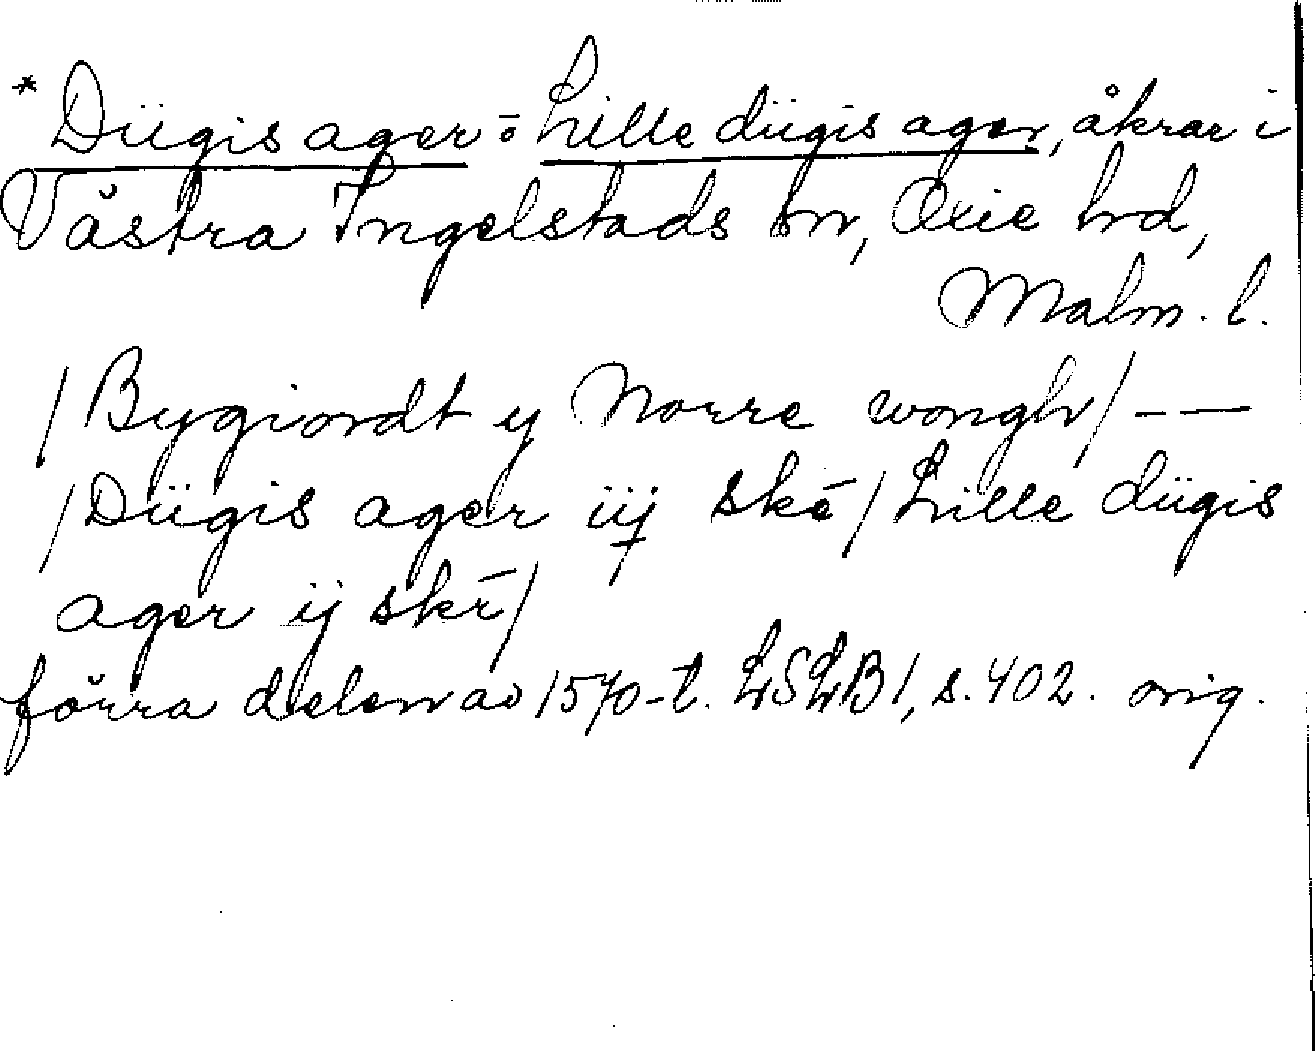 * Dügis ager o Lille dügis ager, åkrar i
Västra Ingelstads sn, Oxie hd,
Malm. l.
/Bygiordt y Norre wongh/ — —
/Dügis ager iij skē/ Lille dügis
ager ij skē/
förra delen av 1570-t. LSLB 1, s. 402. orig.